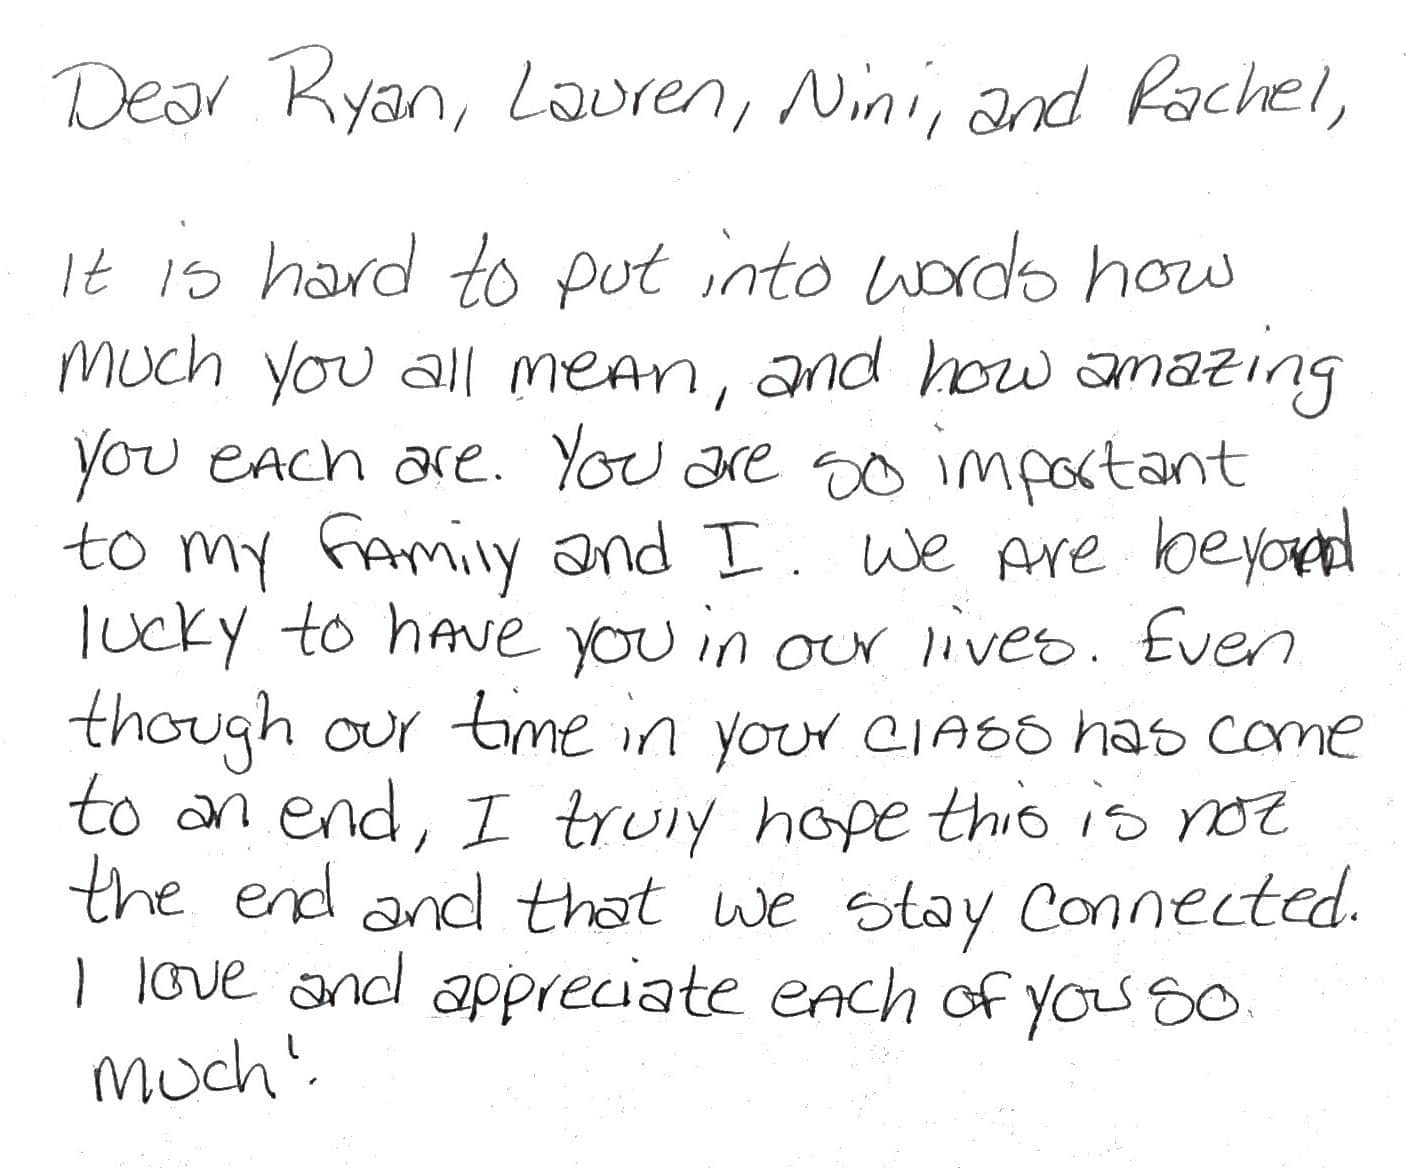 Dear Ryan, Lauren, Nini, and Rachel,
It is hard to put into words how
much you all mean, and how amazing
you each are. You are so important
to my family and I. We are beyond
lucky to have you in our lives. Even
though our time in your class has come
to an end, I truly hope this is not
the end and that we stay connected.
I love and appreciate each of you so
much!